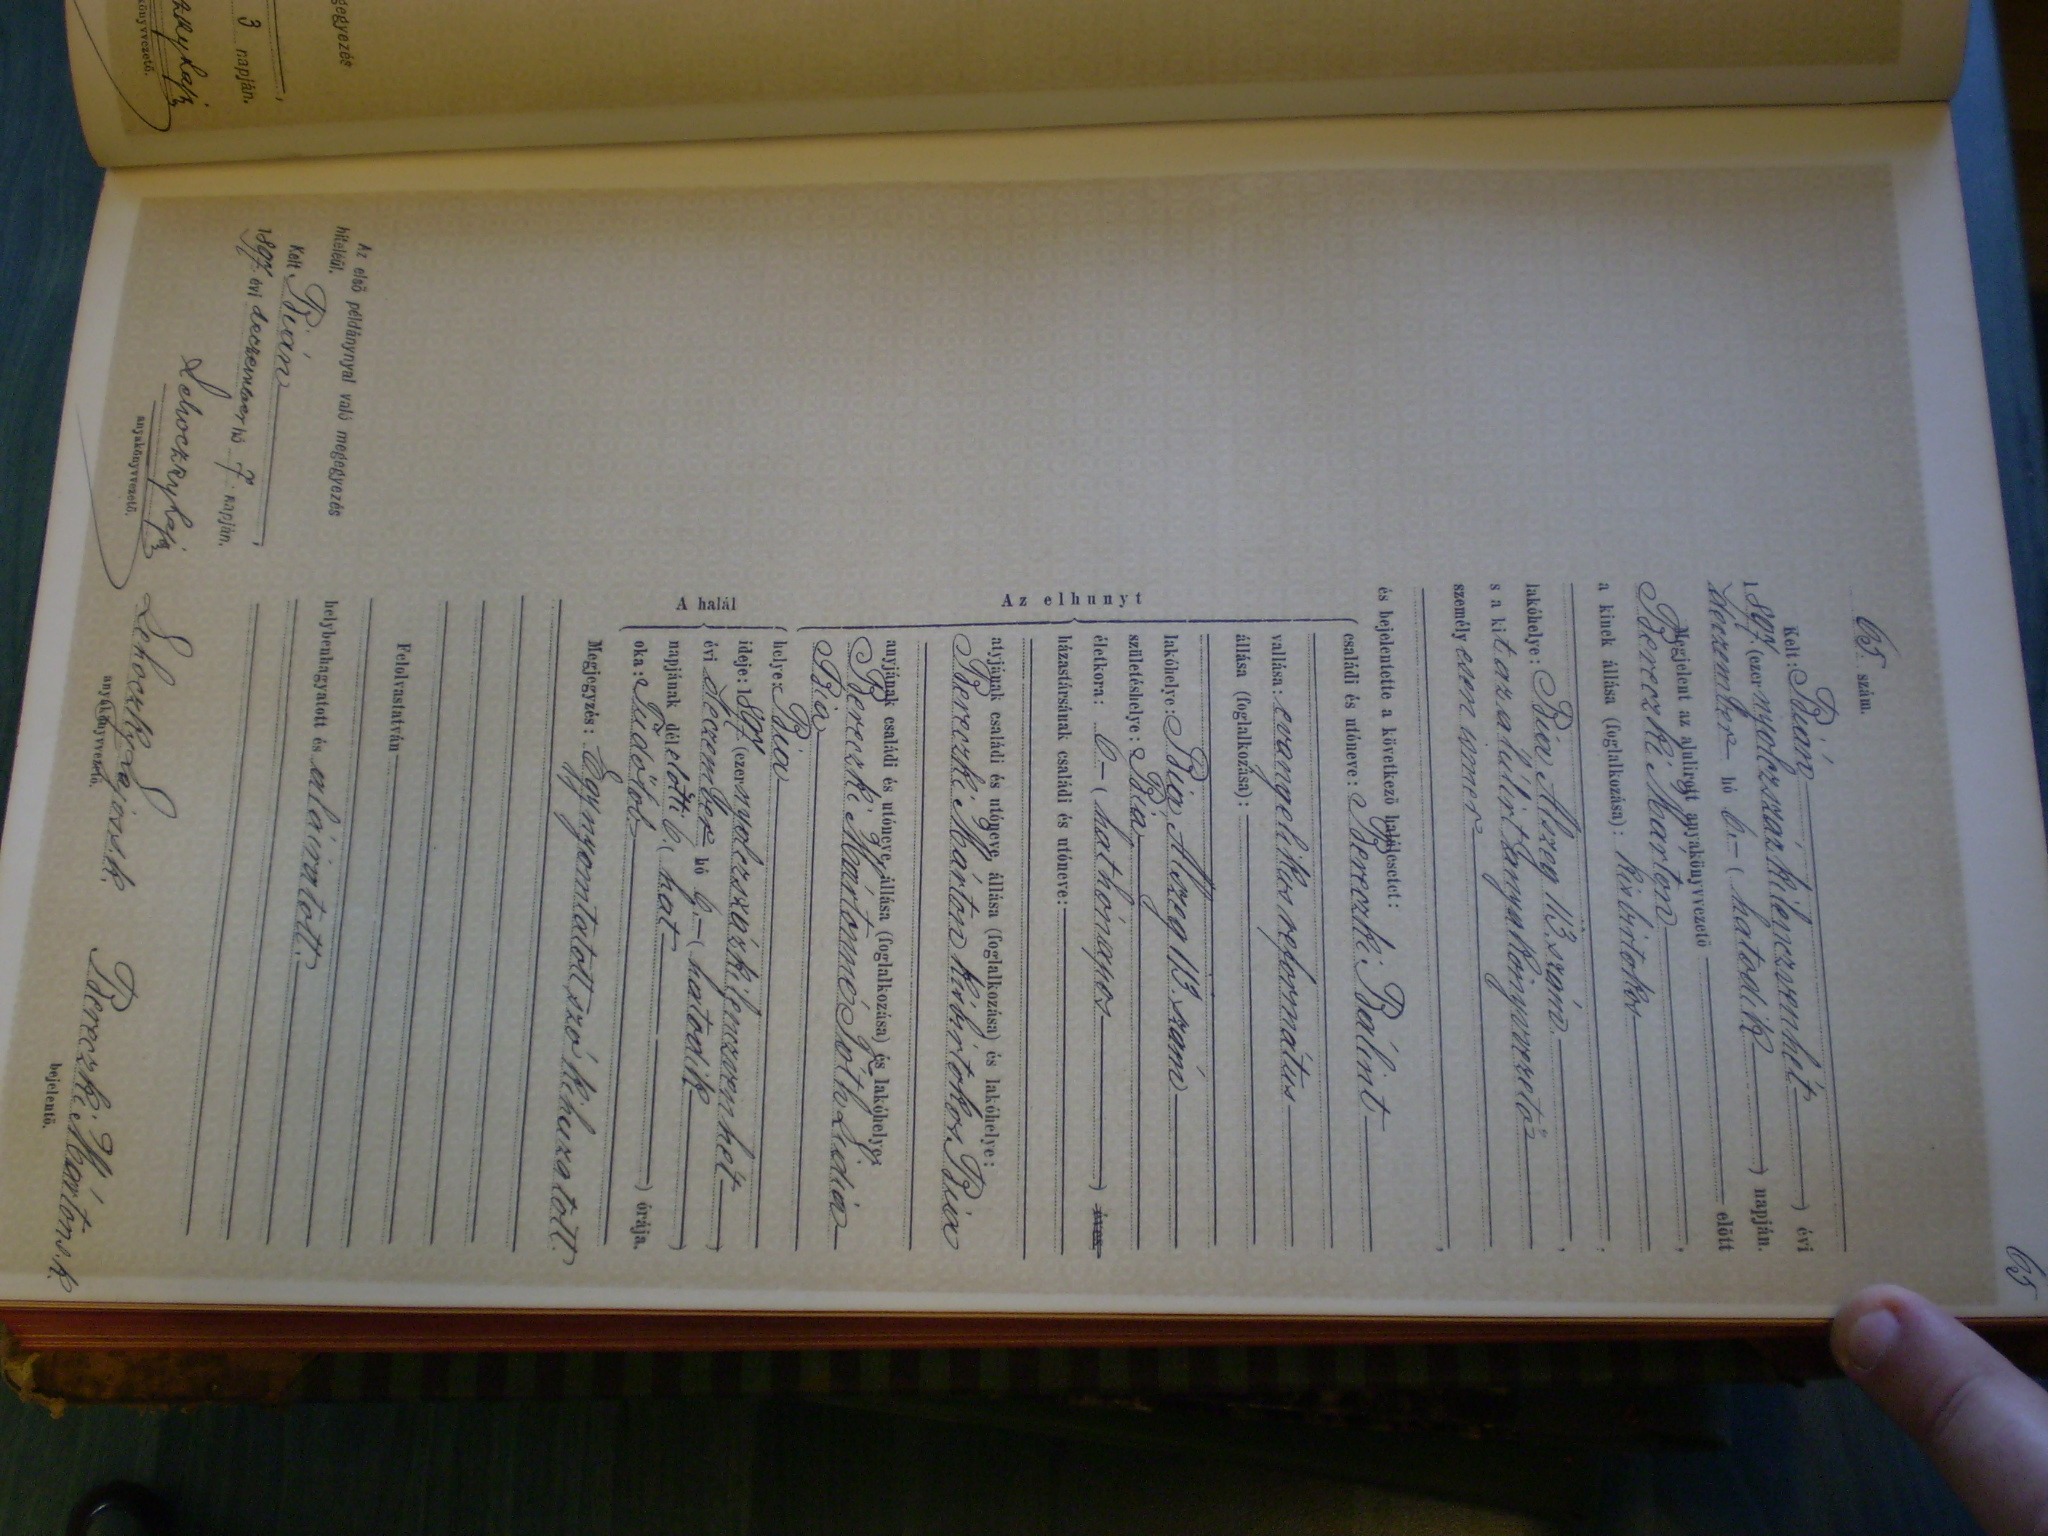 65
65. szám.
Kelt: Bián,
1897 (ezer nyolczszázkilenczvenhét) évi
deczember hó 6.– (hatodik) napján.
Megjelent az alulirott anyakönyvvezető előtt
Bereczki Márton,
a kinek állása (foglalkozása): kisbirtokos,
lakóhelye: Bia Alszeg 113. szám,
s a kit az alúlirt anyakönyvvezető
személyesen ismer,
és bejelentette a következő halálesetet:
Az elhunyt
családi és utóneve: Bereczki Bálint
vallása: evangelikus református
állása (foglalkozása):
lakóhelye: Bia, Alszeg 113. szám
születéshelye: Bia
életkora: 6.– (hat hónapos) éves
házastársának családi és utóneve:
atyjának családi és utóneve, állása (foglalkozása) és lakóhelye:
Bereczki Márton kisbirtokos, Bia
anyjának családi és utóneve, állása (foglalkozása) és lakóhelye:
Bereczki Mártonné Tóth Lidia
Bia
A halál
helye: Bia
ideje: 1897 (ezer nyolczszázkilenczvenhét)
évi deczember hó 6.– (hatodik)
napjának délelőtti 6. (hat) órája.
oka: Tüdőlob
Megjegyzés: Egy nyomtatott szó kihuzatott.
Felolvastatván
helybenhagyatott és aláiratott.
Lehoczky Lajos sk.
anyakönyvvezető.
Bereczki Márton s.k.
bejelentő.
Az első példánynyal való megegyezés
hiteléül.
Kelt Bián,
1897. évi deczember hó 7. napján.
Lehoczky Lajos
anyakönyvvezető.
gegyezés
3 napján.
könyvvezető.